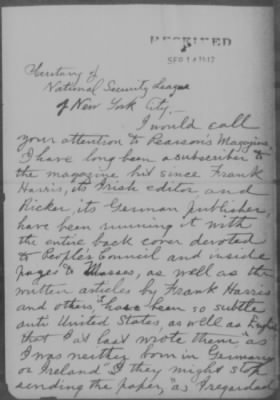 RECEIVED
SEP 14 1917
Secretary of
National Security League
of New York City.—
I would call
your attention to Pearson's Magazine,
I have long been a subscriber to
the magazine but since Frank
Harris, its Irish editor and
Ricker, its German publisher,
have been running it with
the entire back cover devoted
to Peoples Council and inside
page to Masses, as well as the
written articles by Frank Harris
and others, have been so subtle
anti United States, as well as
that "I at last wrote them, "as
I was neither born in Germany
or Ireland" they might stop
sending the paper, "as I regarded